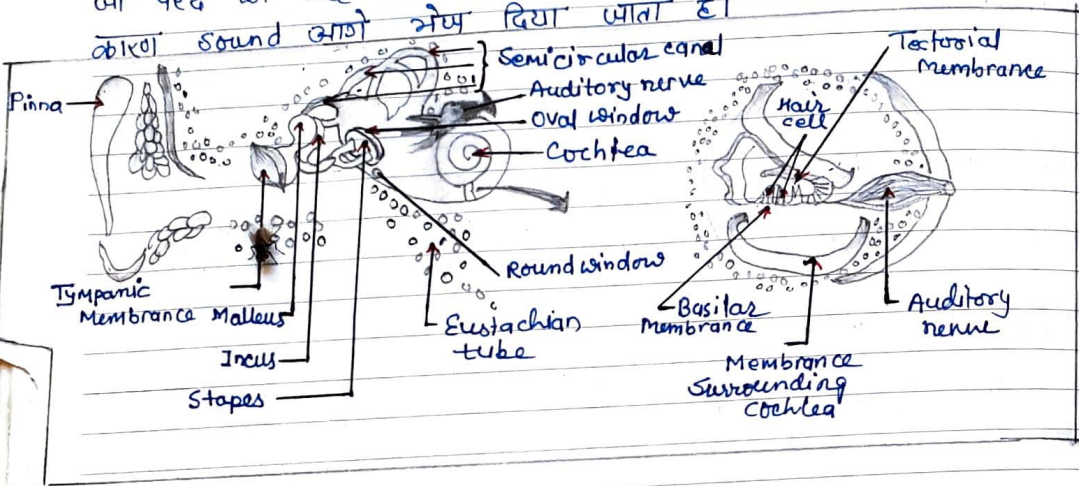 कारण sound आगे भेज दिया जाता है।
Semicircular canal
Auditory nerve
Oval window
Cochlea
Pinna
Round window
Tympanic
Membrance
Malleus
Incus
Stapes
Eustachian
tube
Tectorial
Membrance
Hair
cell
Basilar
Membrance
Auditory
nerve
Membrance
Surrounding
Cochlea